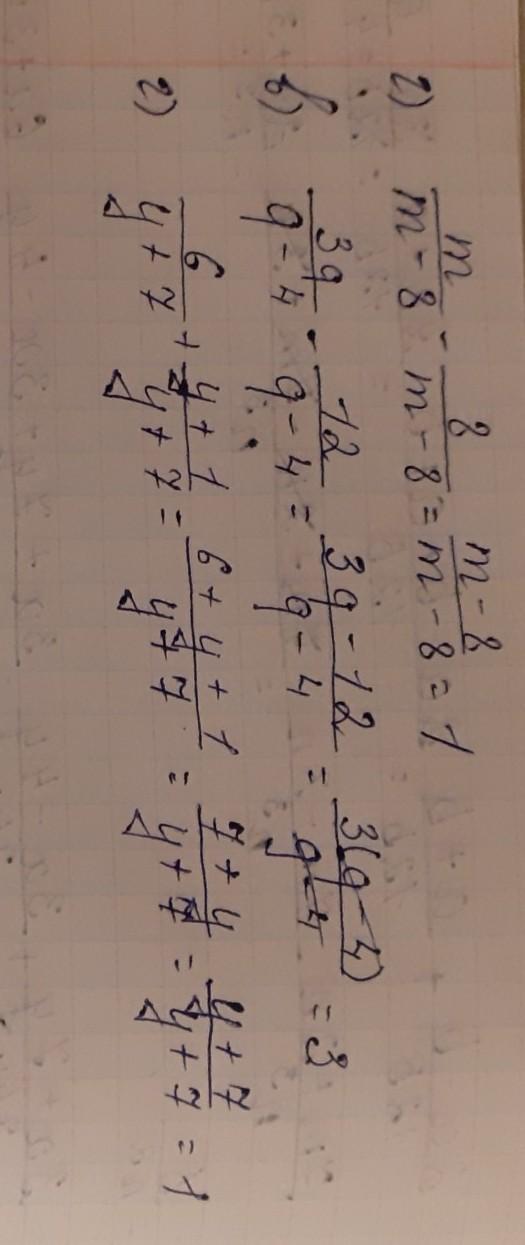 2) m/(m - 8) - 8/(m - 8) = (m - 8)/(m - 8) = 1
в) 3q/(q - 4) - 12/(q - 4) = (3q - 12)/(q - 4) = 3(q - 4)/(q - 4) = 3
г) 6/(y + 7) + (y + 1)/(y + 7) = (6 + y + 1)/(y + 7) = (7 + y)/(y + 7) = (y + 7)/(y + 7) = 1